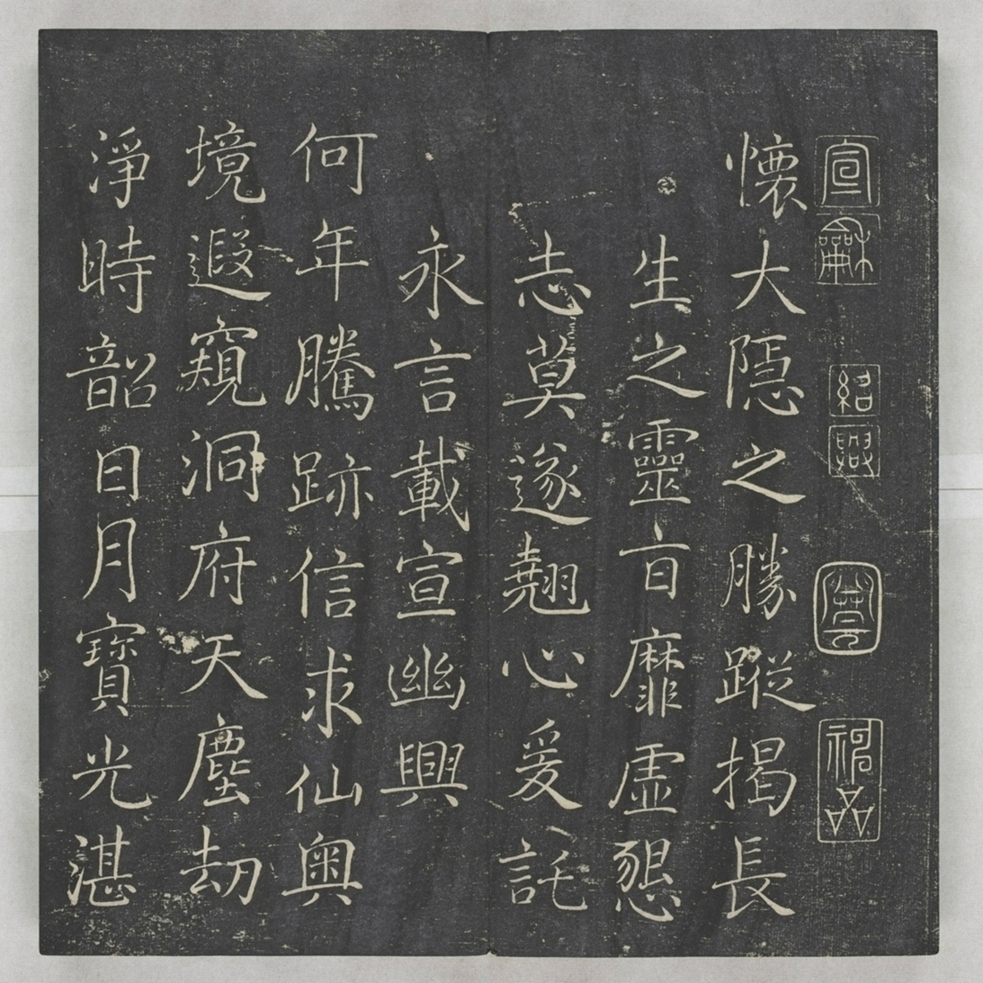 宣龢
紹興
神品
懷大隱之勝蹤揭長
生之靈㫖靡虛懇
志莫遂翹心爰託
永言載宣幽興
何年騰跡信求仙奧
境遐窺洞府天塵劫
淨時韶日月寶光湛